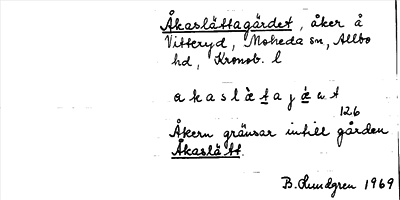 Åkaslättagärdet, åker å
Vitteryd, Moheda sn, Allbo
hd, Kronob. l
126
Åkern gränsar intill gården
Åkaslätt.
B. Lundgren 1969